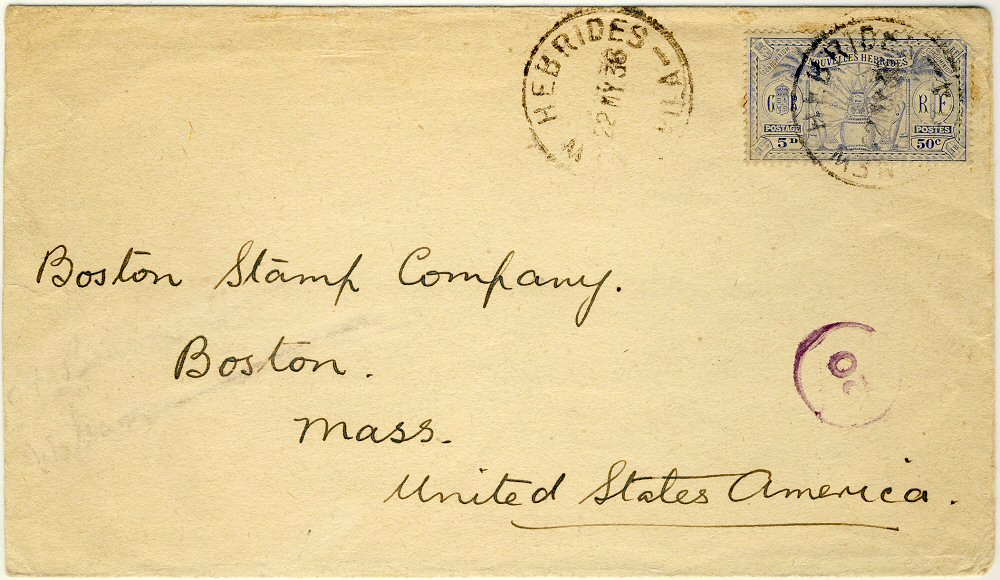 HEBRIDES – VILA
22 MY 36
NOUVELLES HEBRIDES
G R
R F
POSTAGE
POSTES
5D
50c
NEW HEBRIDES
Boston Stamp Company.
Boston.
Mass.
United States America.
02